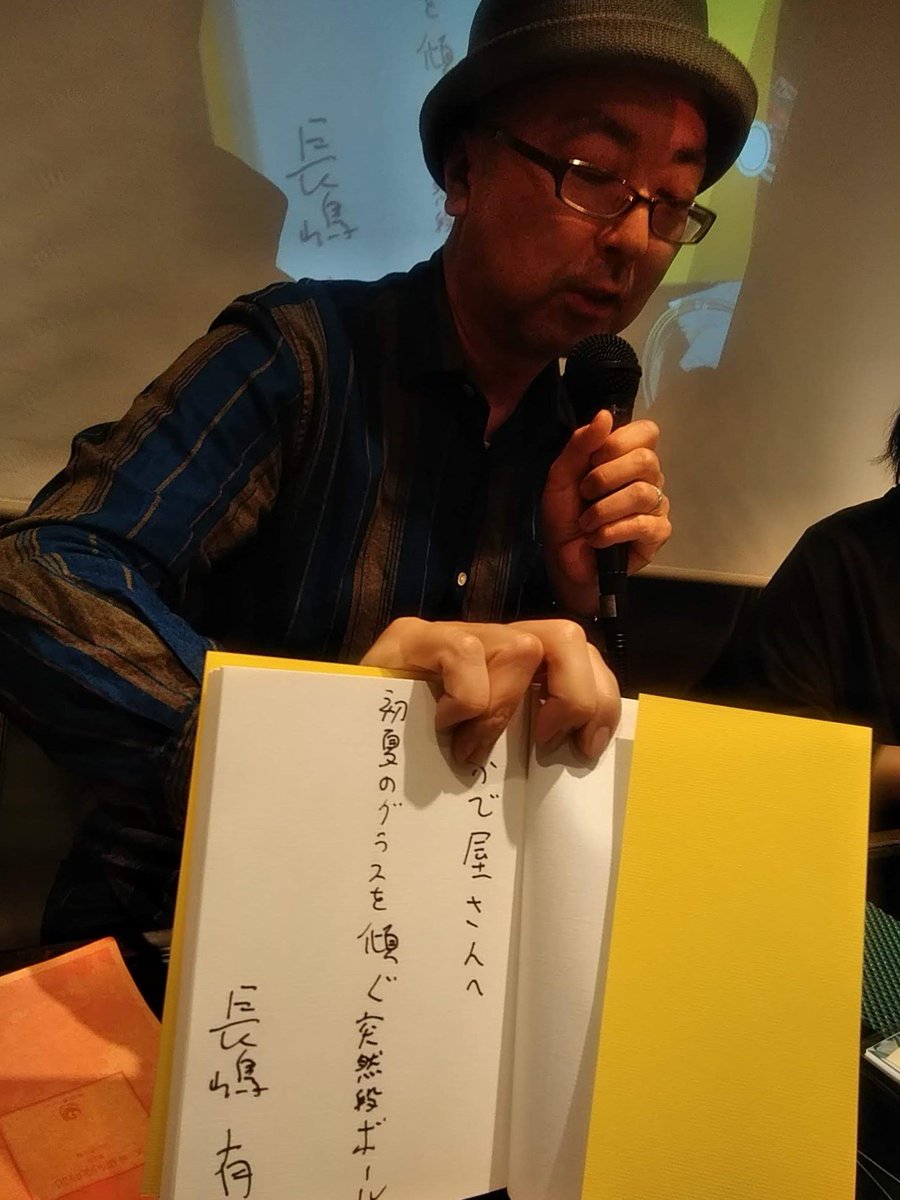 で屋さんへ
初夏のグラスを傾ぐ突然段ボール
長嶋有
と傾
長嶋